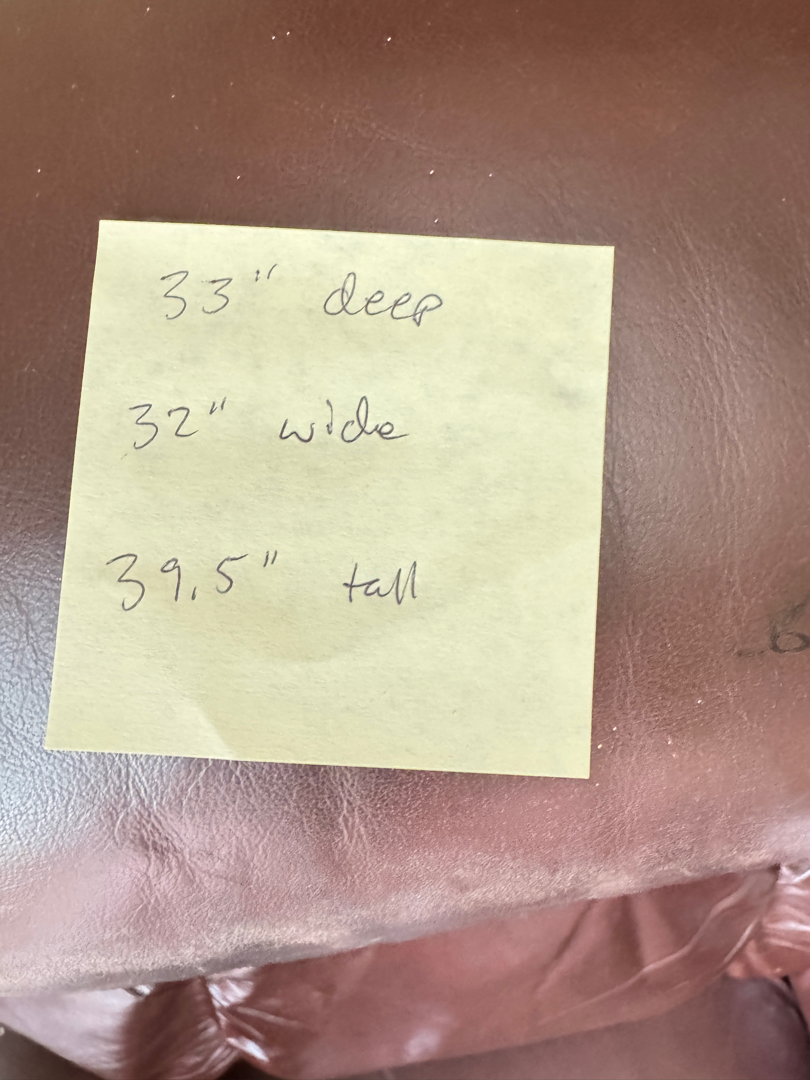 33" deep
32" wide
39.5" tall